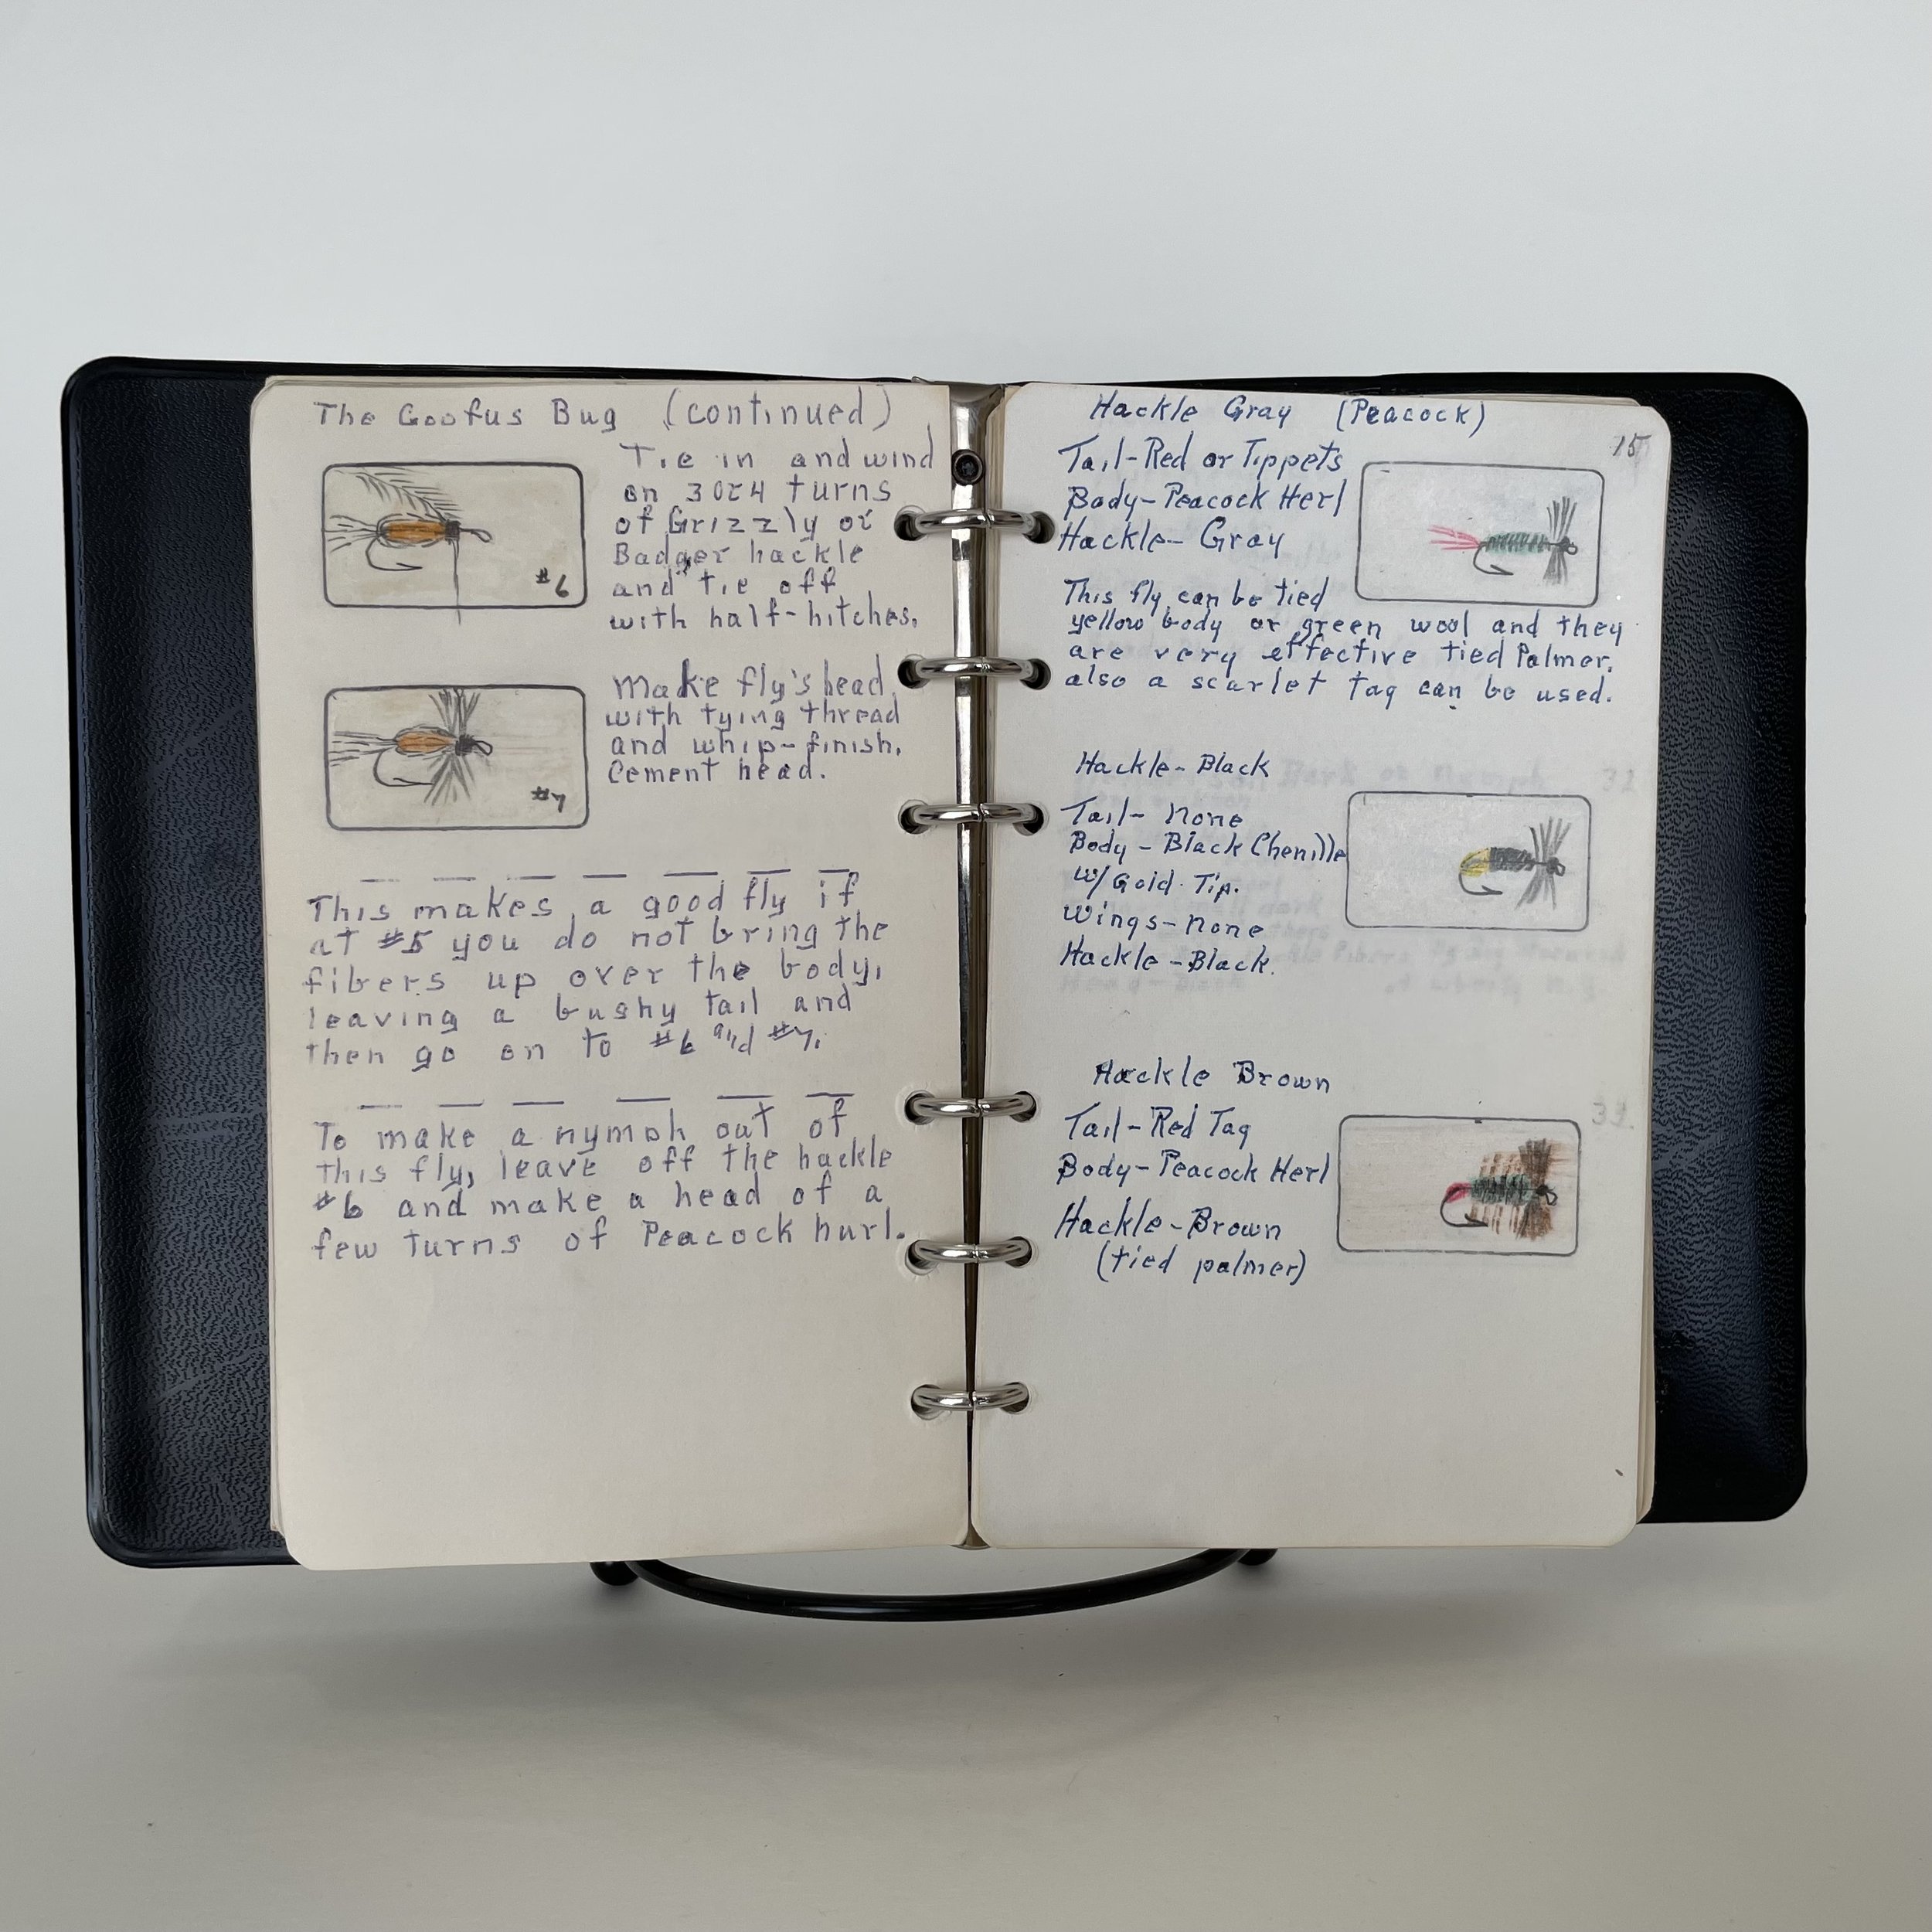 The Goofus Bug (continued)
Tie in and wind
on 3 or 4 turns
of Grizzly or
Badger hackle
and tie off
with half-hitches.
#6
Make fly's head
with tying thread
and whip-finish.
Cement head.
#7
This makes a good fly if
at #5 you do not bring the
fibers up over the body,
leaving a bushy tail and
then go on to #6 and #7.
To make a nymph out of
this fly, leave off the hackle
#6 and make a head of a
few turns of Peacock hurl.
Hackle Gray (Peacock)
15
Tail-Red or Tippets
Body-Peacock Herl
Hackle-Gray
This fly can be tied
yellow body or green wool and they
are very effective tied Palmer.
also a scarlet tag can be used.
Hackle-Black
Tail-None
Body-Black Chenille
w/Gold Tip.
Wings-None
Hackle-Black.
Hackle Brown
Tail-Red Tag
Body-Peacock Herl
Hackle-Brown
(tied palmer)